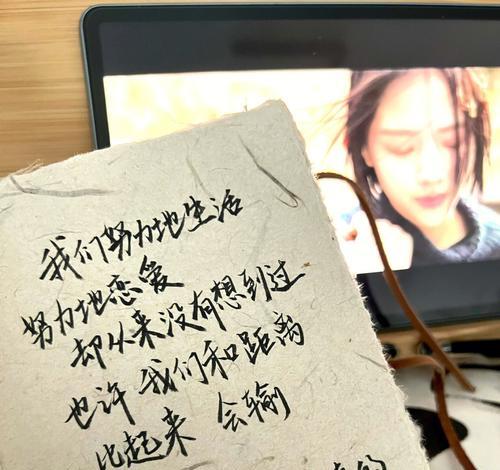 我们努力地生活
努力地恋爱
却从来没有想到过
也许 我们和距离
比起来 会输